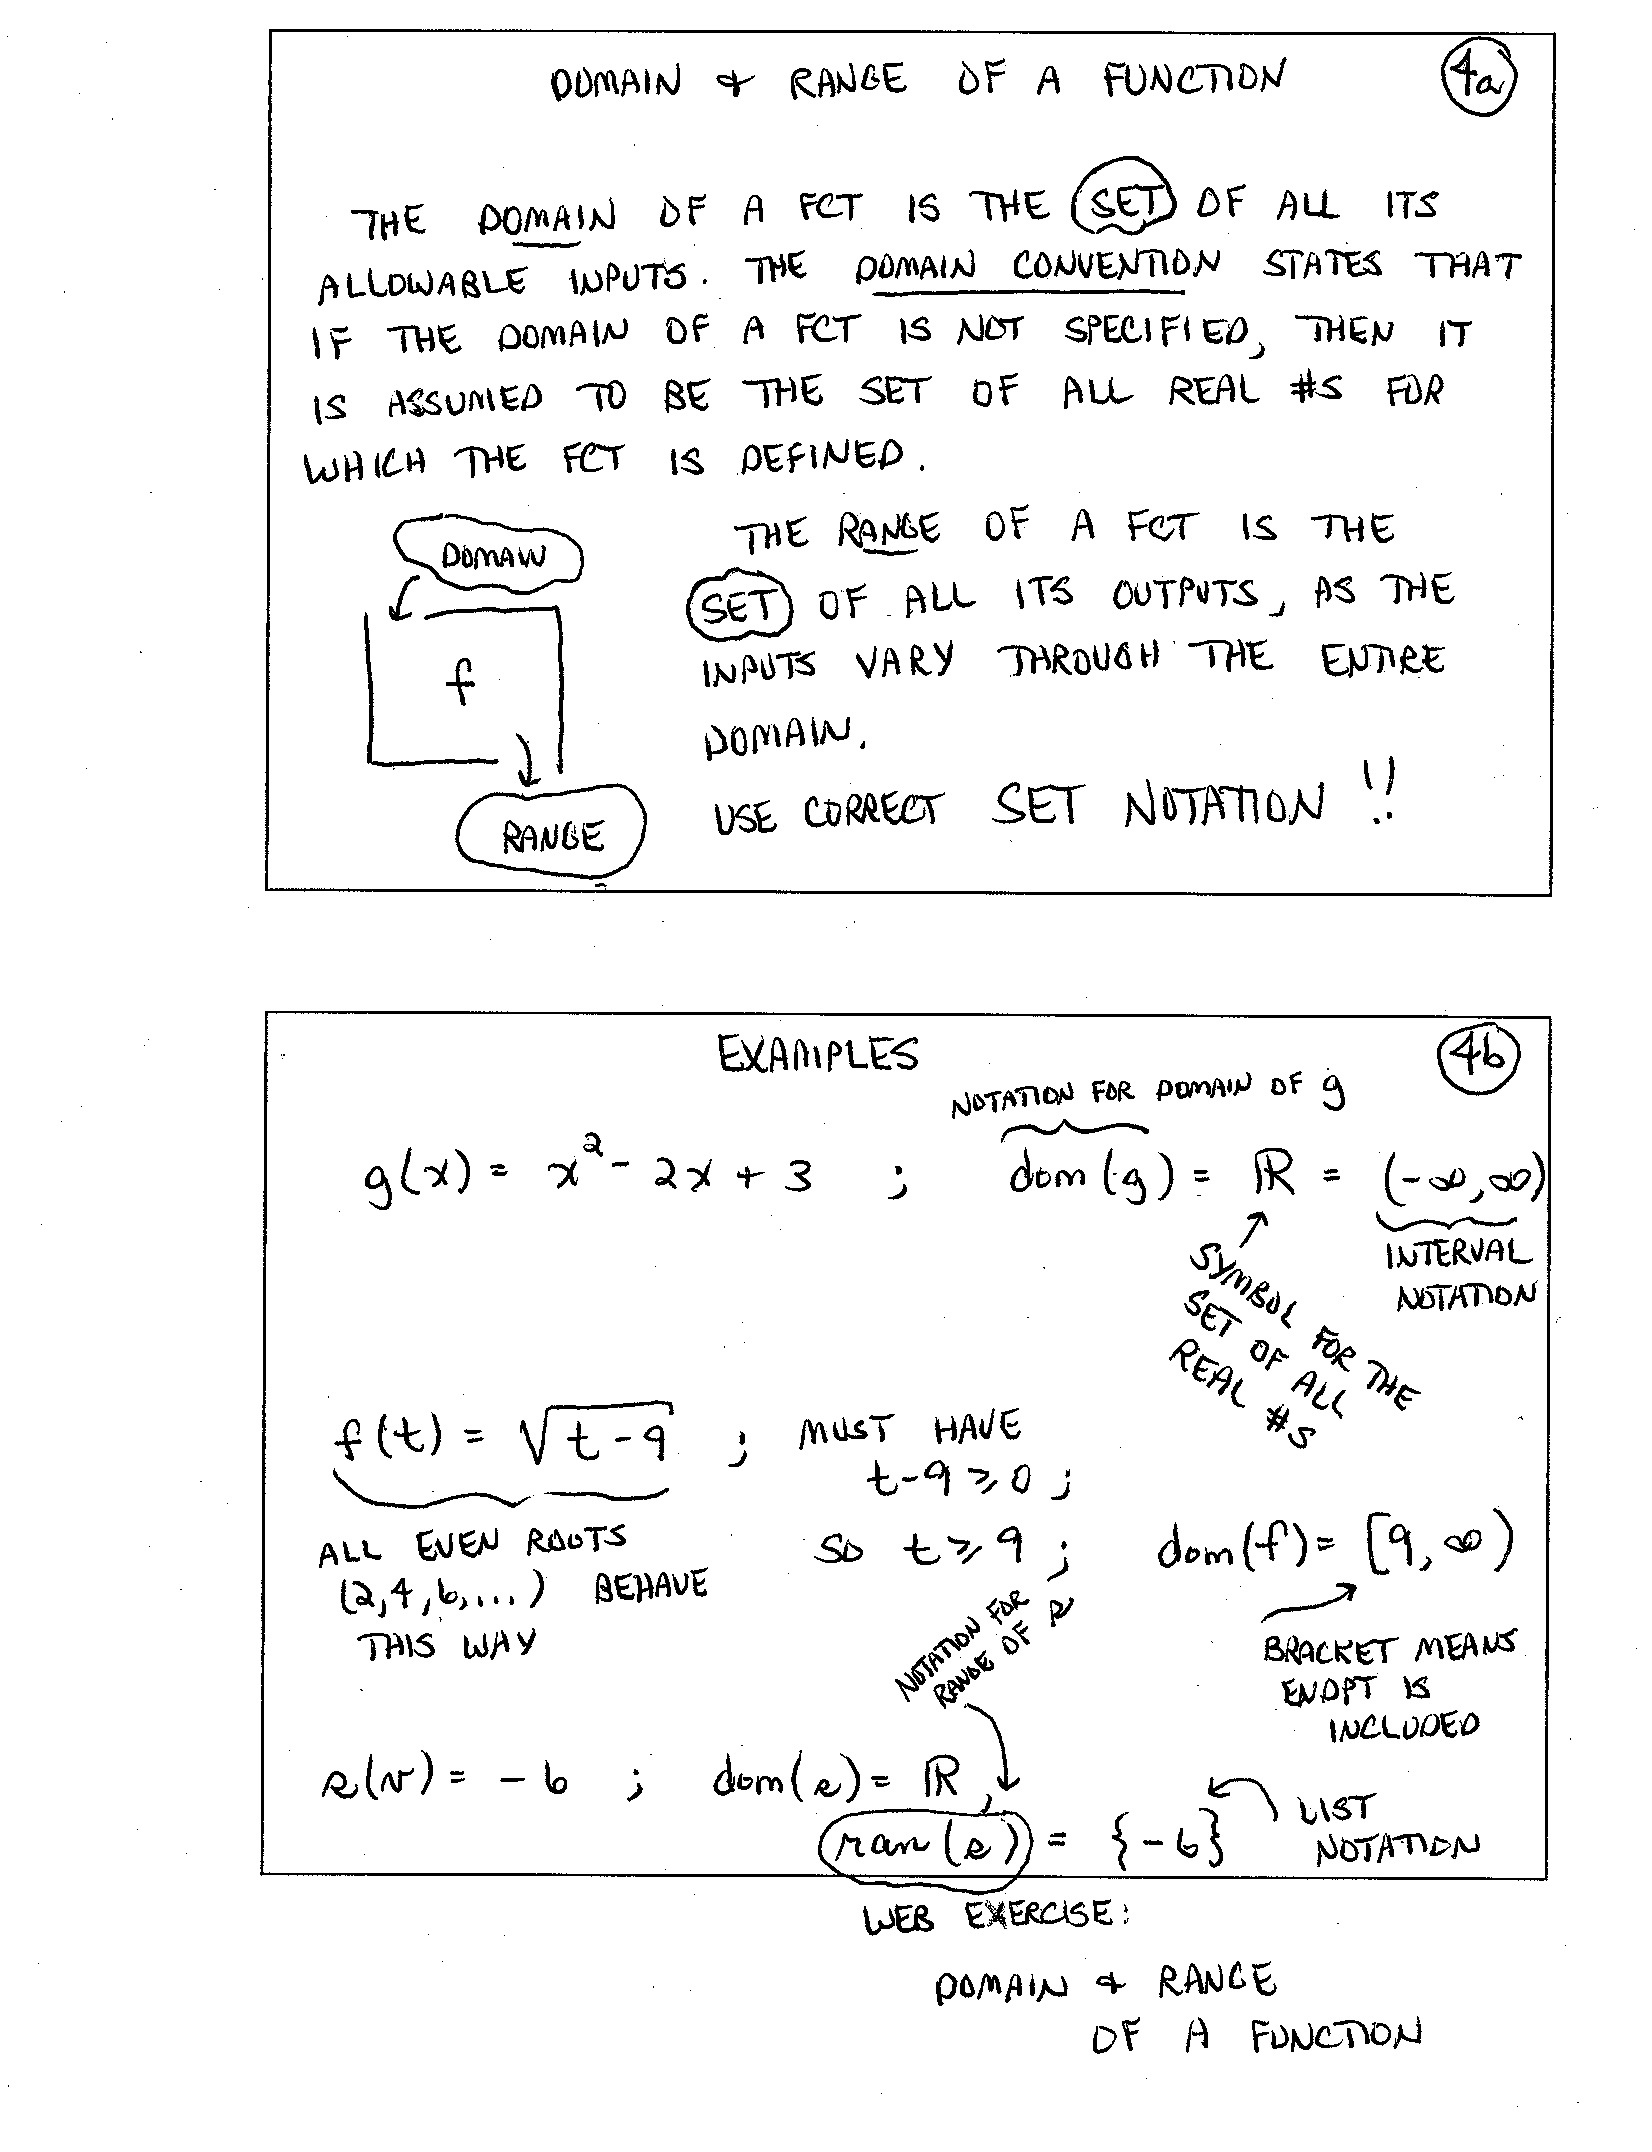 DOMAIN & RANGE OF A FUNCTION
4a
THE DOMAIN OF A FCT IS THE SET OF ALL ITS
ALLOWABLE INPUTS. THE DOMAIN CONVENTION STATES THAT
IF THE DOMAIN OF A FCT IS NOT SPECIFIED, THEN IT
IS ASSUMED TO BE THE SET OF ALL REAL #S FOR
WHICH THE FCT IS DEFINED.
DOMAIN
f
RANGE
THE RANGE OF A FCT IS THE
SET OF ALL ITS OUTPUTS, AS THE
INPUTS VARY THROUGH THE ENTIRE
DOMAIN.
USE CORRECT SET NOTATION !!
EXAMPLES
4b
NOTATION FOR DOMAIN OF g
g(x) = x² - 2x + 3 ; dom(g) = ℝ = (-∞,∞)
SYMBOL FOR THE
SET OF ALL
REAL #S
INTERVAL
NOTATION
f(t) = √(t-9) ; MUST HAVE
t-9 ≥ 0 ;
ALL EVEN ROOTS
(2,4,6,...) BEHAVE
THIS WAY
SO t ≥ 9 ; dom(f) = [9,∞)
BRACKET MEANS
ENDPT IS
INCLUDED
NOTATION FOR
RANGE OF r
r(v) = -6 ; dom(r) = ℝ ,
ran(r) = {-6}
LIST
NOTATION
WEB EXERCISE:
DOMAIN & RANGE
OF A FUNCTION